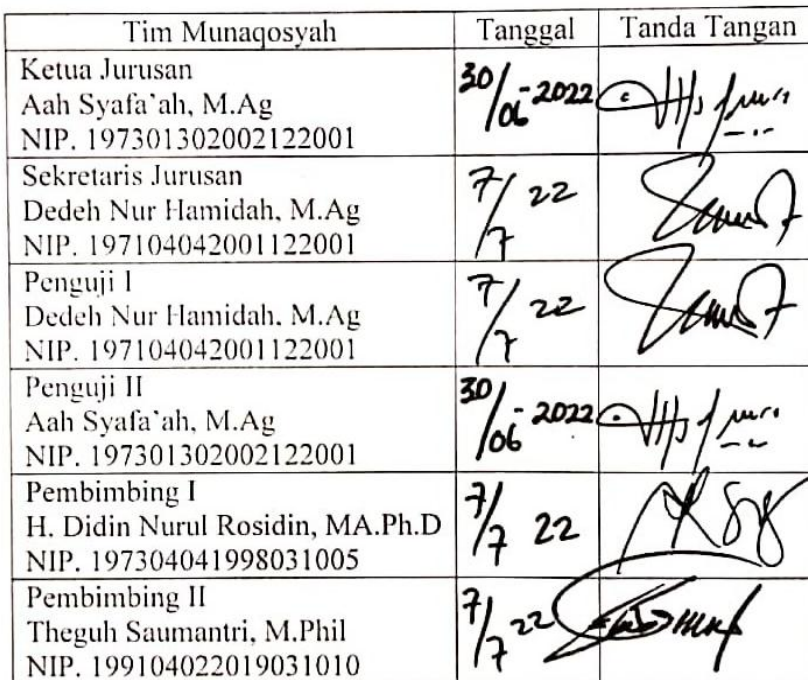 Tim Munaqosyah Tanggal Tanda Tangan
Ketua Jurusan
Aah Syafa'ah, M.Ag
NIP. 197301302002122001
30/06-2022
Sekretaris Jurusan
Dedeh Nur Hamidah, M.Ag
NIP. 197104042001122001
7/7 22
Penguji I
Dedeh Nur Hamidah, M.Ag
NIP. 197104042001122001
7/7 22
Penguji II
Aah Syafa'ah, M.Ag
NIP. 197301302002122001
30/06-2022
Pembimbing I
H. Didin Nurul Rosidin, MA.Ph.D
NIP. 197304041998031005
7/7 22
Pembimbing II
Theguh Saumantri, M.Phil
NIP. 199104022019031010
7/7 22